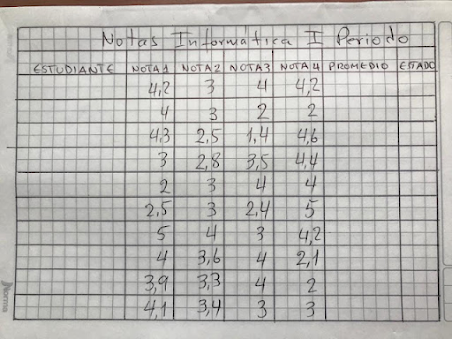 Notas Informática I Periodo
ESTUDIANTE NOTA1 NOTA2 NOTA3 NOTA4 PROMEDIO ESTADO
4,2 3 4 4,2
4 3 2 2
4,3 2,5 1,4 4,6
3 2,8 3,5 4,4
2 3 4 4
2,5 3 2,4 5
5 4 3 4,2
4 3,6 4 2,1
3,9 3,3 4 2
4,1 3,4 3 3
Norma